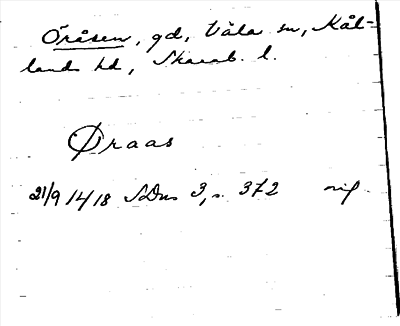 Öråsen, gd, Väla sn, Kål-
lands hd, Skarab. l.
Øraas
21/9 1418 SDns 3, s. 372 orig.